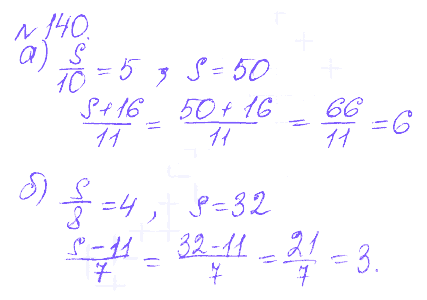 № 140.
а) S/10 = 5 , S = 50
(S+16)/11 = (50+16)/11 = 66/11 = 6
б) S/8 = 4 , S = 32
(S-11)/7 = (32-11)/7 = 21/7 = 3.